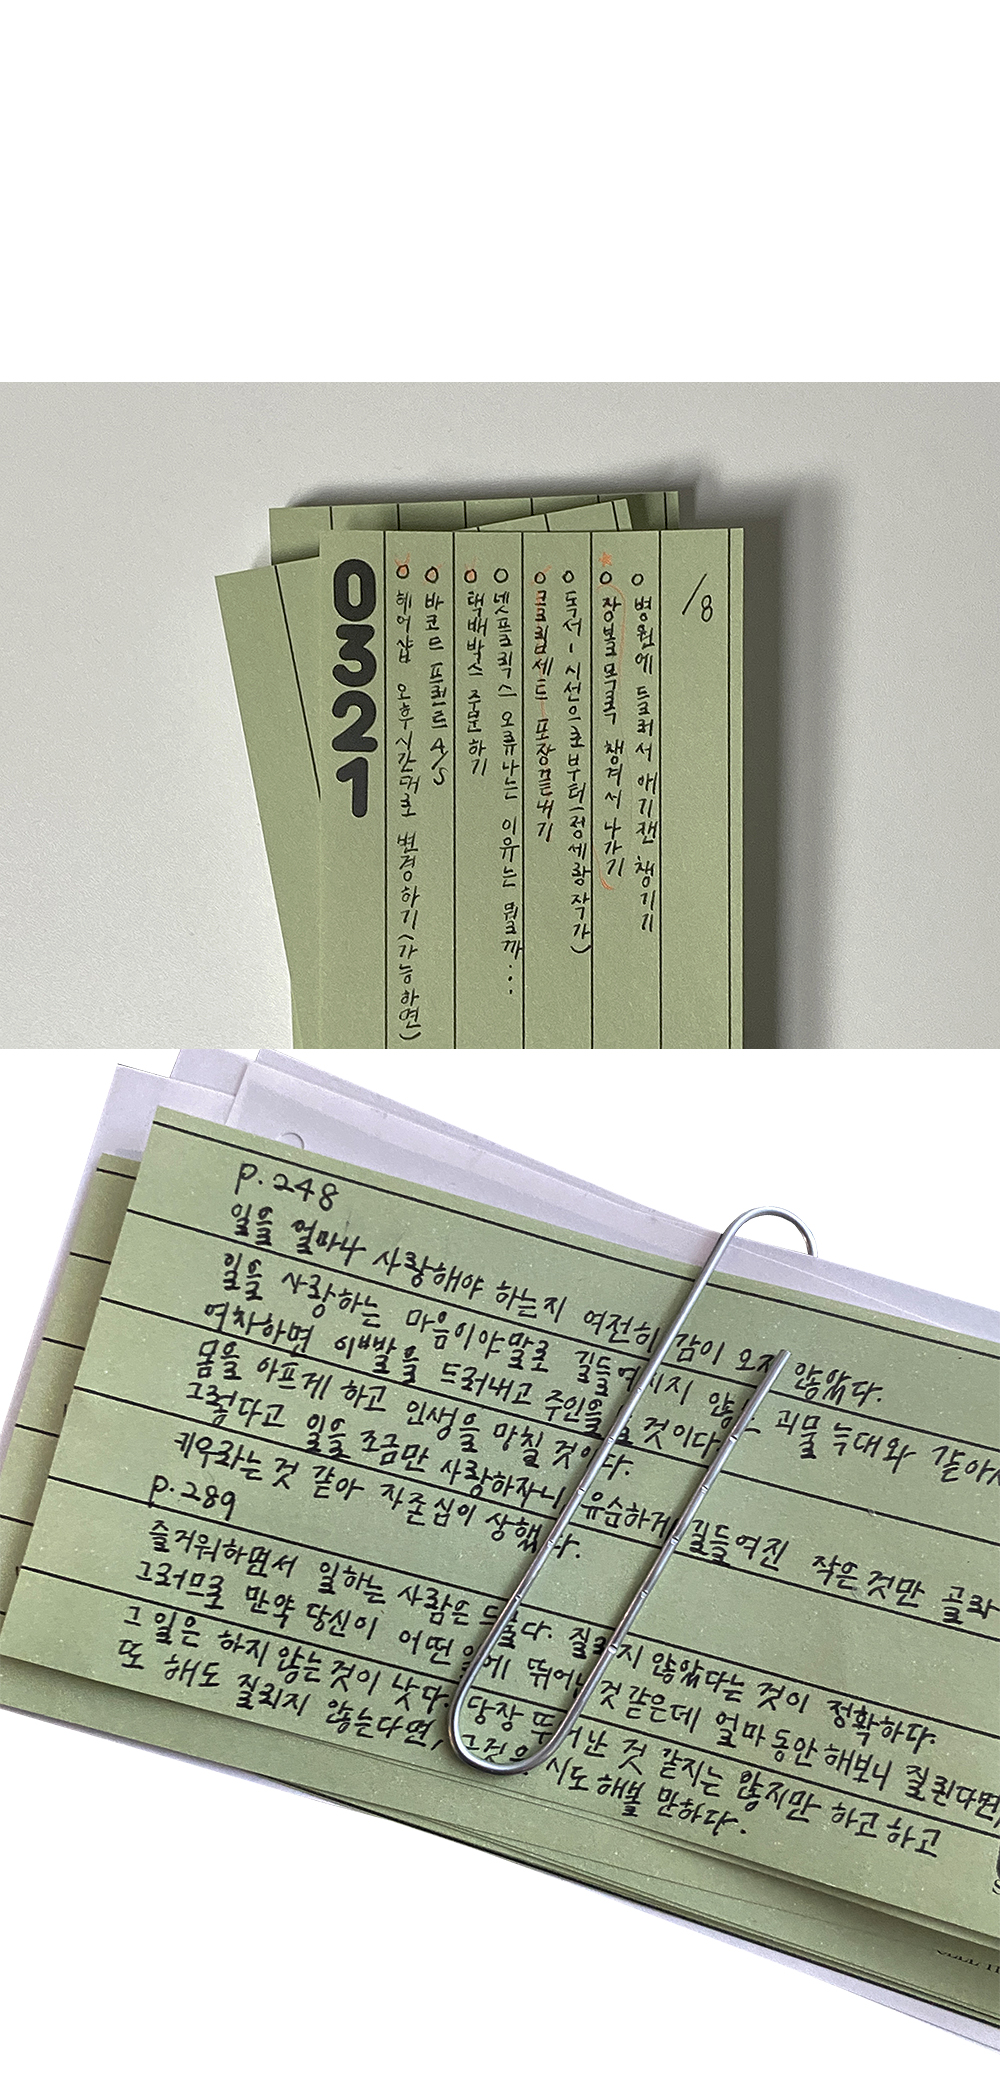 0321
헤어샵 오후시간대로 변경하기(가능하면)
바코드 프린트 A/S
택배박스 주문하기
넷플릭스 오류나는 이유는 뭘까...
클립세트 포장끝내기
독서 - 시선으로부터(정세랑작가)
장볼목록 챙겨서 나가기
병원에 들러서 애기랜 챙기기
/8
p.248
일을 얼마나 사랑해야 하는지 여전히 감이 오지 않았다.
일을 사랑하는 마음이야말로 길들여지지 않는 괴물 늑대와 같아서
여차하면 이빨을 드러내고 주인을 물 것이다.
몸을 아프게 하고 인생을 망칠 것이다.
그렇다고 일을 조금만 사랑하자니 유순하게 길들여진 작은것만 골라
키우라는 것 같아 자존심이 상했다.
p.289
즐거워하면서 일하는 사람은 드물다. 질리지 않았다는 것이 정확하다.
그러므로 만약 당신이 어떤 일에 뛰어난 것 같은데 얼마 동안 해보니 질린다면,
그 일은 하지 않는 것이 낫다. 당장 뛰어난 것 같지는 않지만 하고 하고
또 해도 질리지 않는다면, 그것은 시도해볼 만하다.